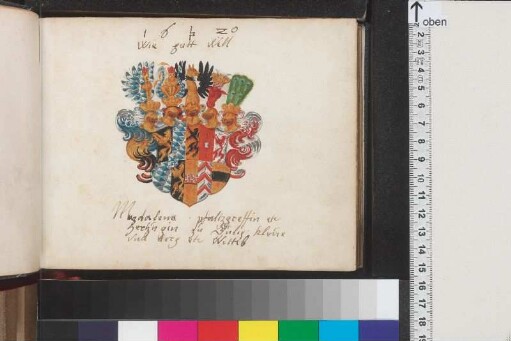 1 6 2 0
wie gott will
Magdalena pfaltzgreffin
Hertzogin zu Gulig kleue
und berg
oben
2
3
4
5
6
7
8
9
10
11
12
13
14
15
16
17
18
19